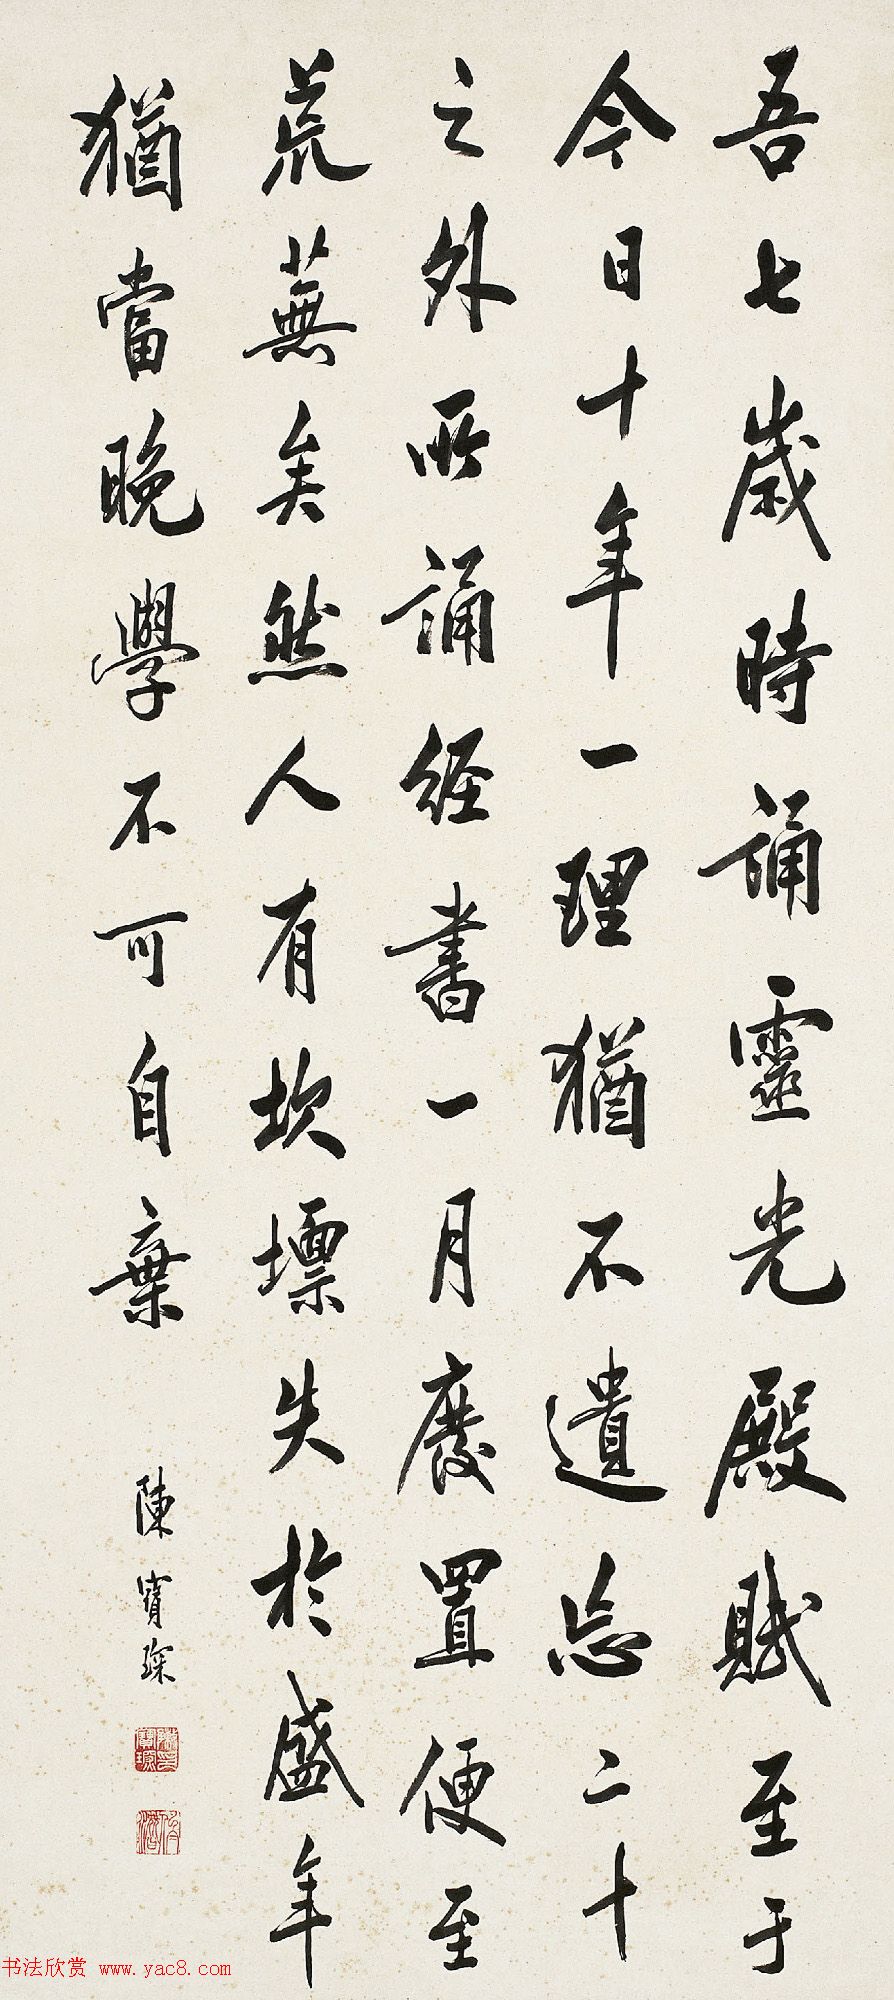 吾七歲時誦靈光殿賦至于
今日十年一理猶不遺忘二十
之外所誦經書一月廢置便至
荒蕪矣然人有坎壈失於盛年
猶當晚學不可自棄
陳寶琛
陳寶琛
书法欣赏 www.yac8.com